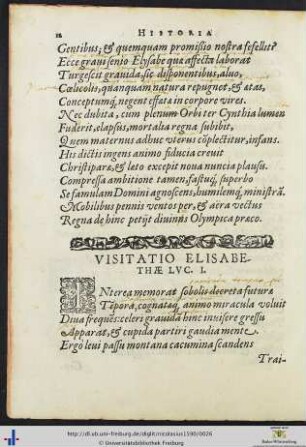 12 HISTORIA
Gentibus; & quemquam promissio nostra fefellit?
Ecce graui senio Elysabe quæ affecta laborat
Turgescit grauida, sic disponentibus, aluo,
Cælicolis, quanquam natura repugnet, & ætas,
Conceptumq́; negent effœta in corpore vires.
Nec dubita, cum plenum Orbi ter Cynthia lumen
Fuderit, elapsus, mortalia regna subibit,
Quem maternus adhuc vterus cōplectitur, infans.
His dictis ingens animo fiducia creuit
Christiparæ, & læto excepit noua nuncia plausu.
Compressa ambitione tamen, fastuq́; superbo
Se famulam Domini agnoscens, humilemq́; ministrā.
Mobilibus pennis ventos per, & aëra vectus
Regna de hinc petijt diuinus Olympica præco.
VISITATIO ELISABE-
THÆ LVC. I.
INterea memorat sobolis decreta futuræ
Tēpora, cognatæq́; animo miracula voluit
Diua frequēs: celeri grauidā hinc inuisere gressu
Apparat, & cupida partiri gaudia mente.
Ergo leui passu montana cacumina scandens
Trai-
http://dl.ub.uni-freiburg.de/diglit/nicolasius1590/0026
© Universitätsbibliothek Freiburg
Baden-Württemberg